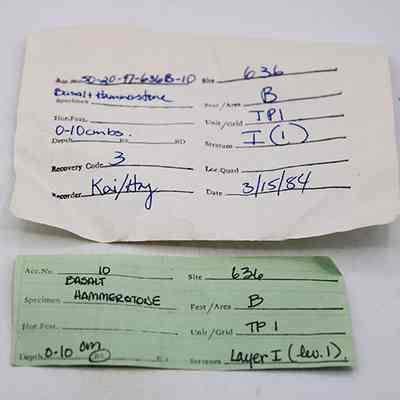 Acc.No. 50-20-97-636B-10 Site 636
Basalt Hammerstone
Specimen Feat/Area B
Hor.Post. Unit/Grid TP1
0-10cmbs.
Depth BS BD Stratum I (1)
Recovery Code 3 Loc.Quad
Recorder Kai/Hay Date 3/15/84
Acc.No. 10 Site 636
BASALT
Specimen HAMMERSTONE Feat/Area B
Hor.Post. Unit/Grid TP 1
Depth 0-10 cm BS Stratum Layer I (lev. 1).